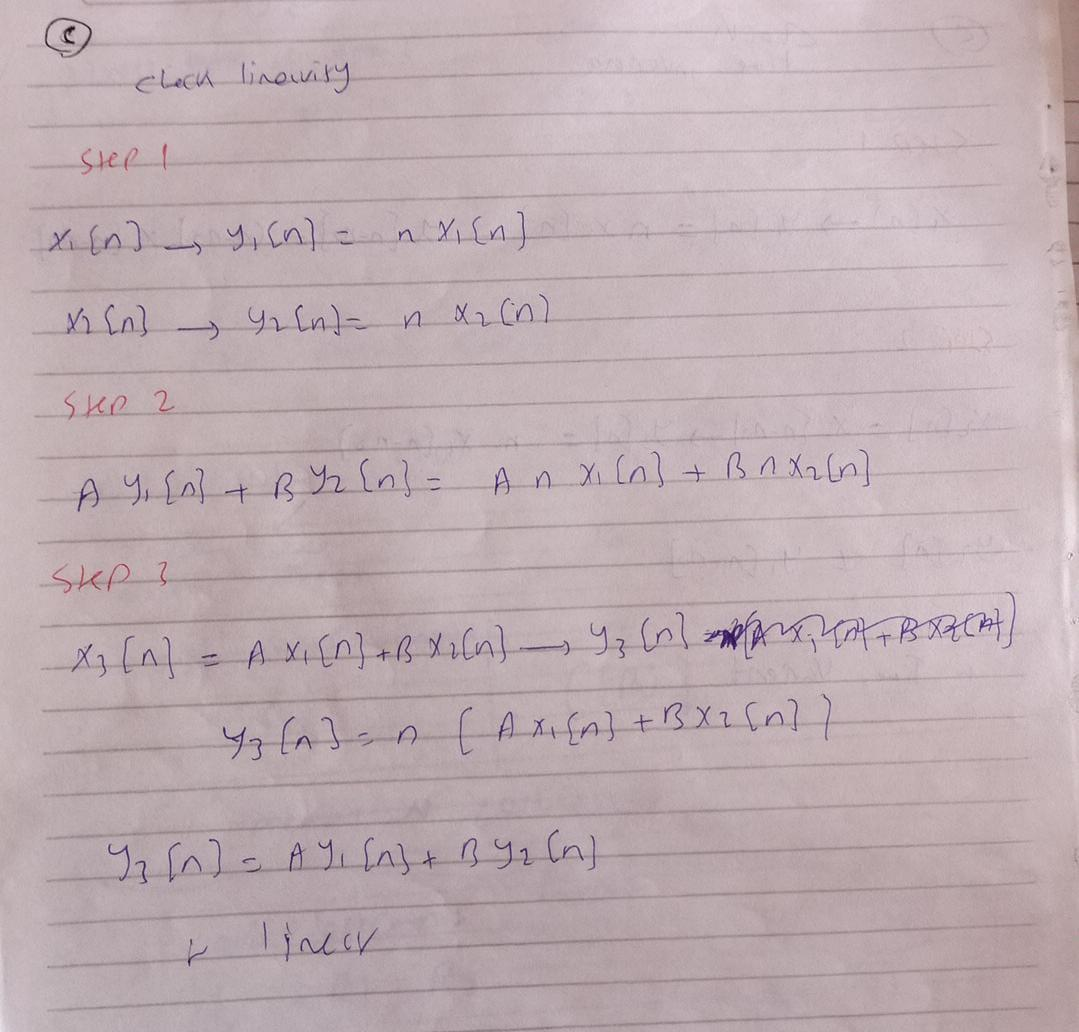 C
check linearity
Step 1
x₁[n] → y₁[n] = n x₁[n]
x₂[n] → y₂[n] = n x₂[n]
Step 2
A y₁[n] + B y₂[n] = A n x₁[n] + B n x₂[n]
Step 3
x₃[n] = A x₁[n] + B x₂[n] → y₃[n]
y₃[n] = n [A x₁[n] + B x₂[n]]
y₃[n] = A y₁[n] + B y₂[n]
linear